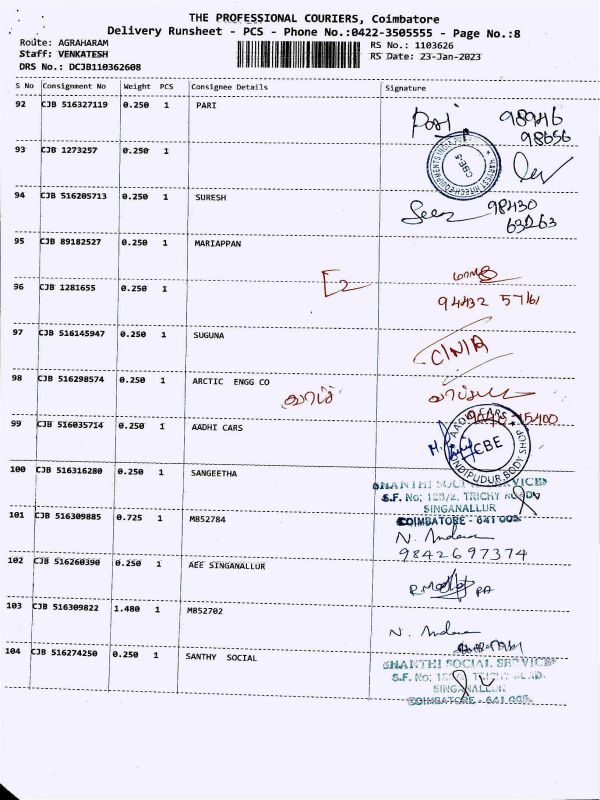 THE PROFESSIONAL COURIERS, Coimbatore
Delivery Runsheet - PCS - Phone No.:0422-3505555 - Page No.:8
Route: AGRAHARAM
Staff: VENKATESH
DRS No.: DCJB110362608
RS No.: 1103626
RS Date: 23-Jan-2023
S No Consignment No Weight PCS Consignee Details Signature
92 CJB 516327119 0.250 1 PARI
98946
98656
93 CJB 1273257 0.250 1
CBE-5
94 CJB 516205713 0.250 1 SURESH
98430
63263
95 CJB 89182527 0.250 1 MARIAPPAN
96 CJB 1281655 0.250 1
97 CJB 516145947 0.250 1 SUGUNA
98 CJB 516298574 0.250 1 ARCTIC ENGG CO
99 CJB 516035714 0.250 1 AADHI CARS
AADHI CARS
CBE
ONDIPUDUR.BODY SHOP
100 CJB 516316280 0.250 1 SANGEETHA
SHANTHI SOCIAL SERVICES
S.F. No; 128/2, TRICHY ROAD,
SINGANALLUR
COIMBATORE - 641 005.
101 CJB 516309885 0.725 1 M852784
9842697374
102 CJB 516260390 0.250 1 AEE SINGANALLUR
103 CJB 516309822 1.480 1 M852702
104 CJB 516274250 0.250 1 SANTHY SOCIAL
SHANTHI SOCIAL SERVICES
S.F. No; TRICHY ROAD.
SINGANALLUR
COIMBATORE - 641 005.